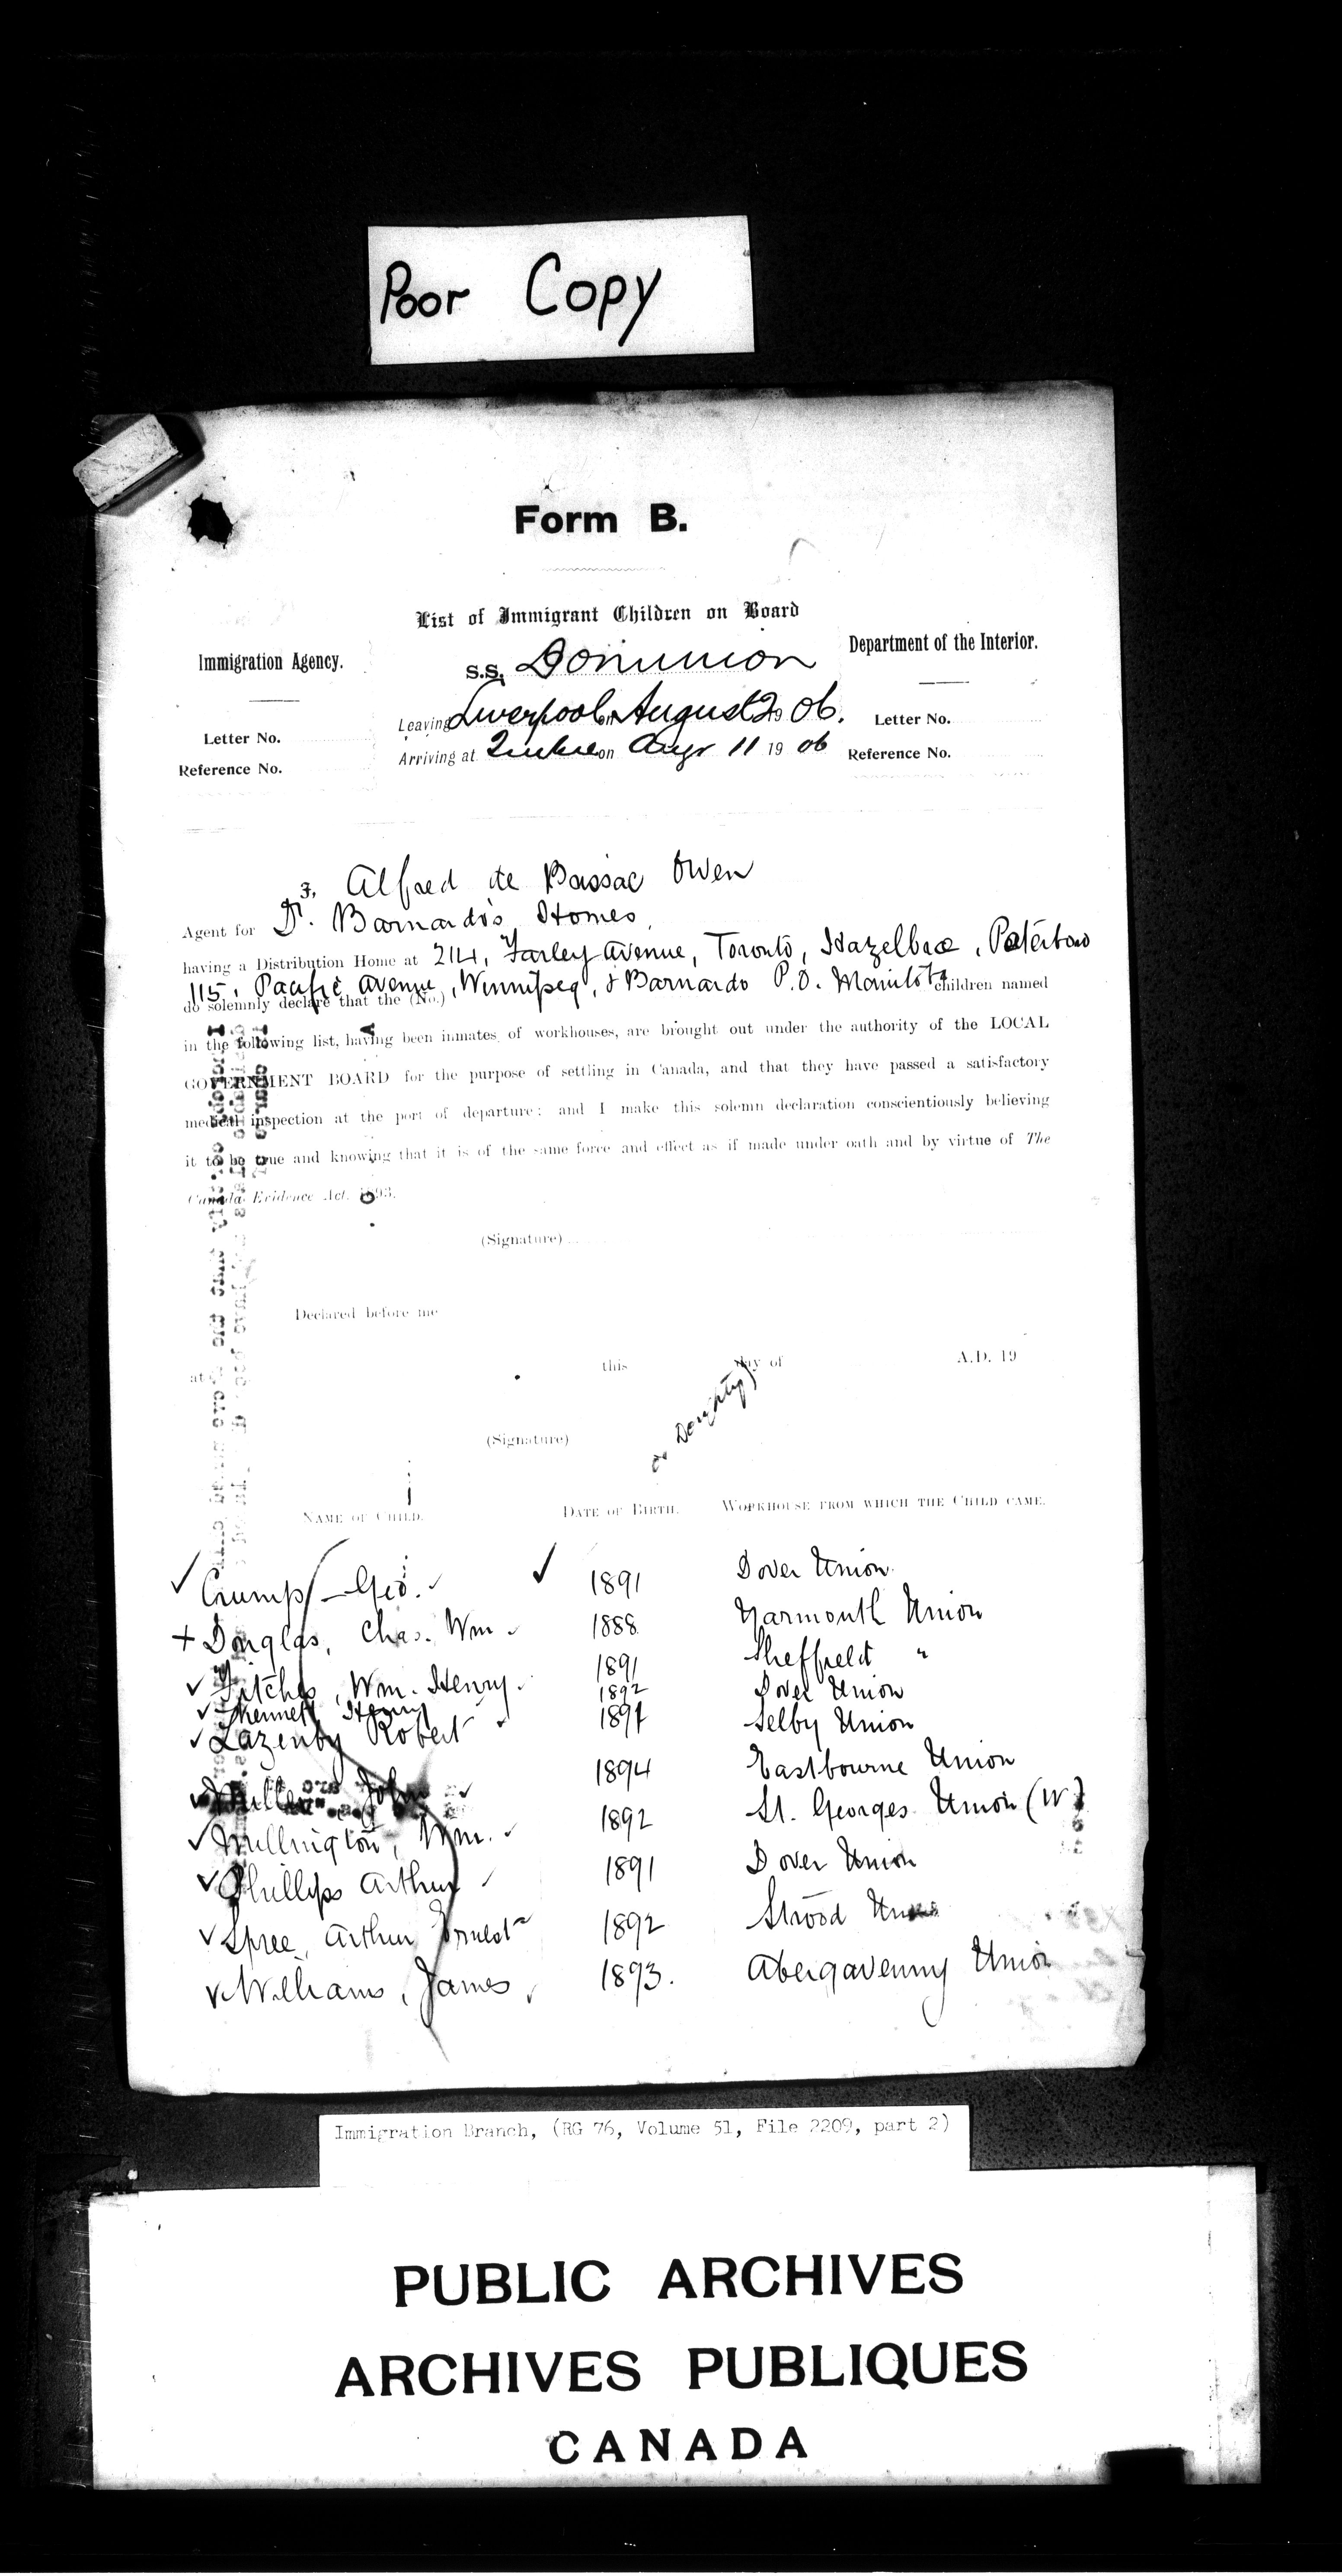 Poor Copy
Form B.
List of Immigrant Children on Board
Immigration Agency.
Department of the Interior.
S.S. Dominion
Leaving Liverpool on August 2 19 06.
Letter No.
Letter No.
Arriving at Quebec on Augr 11 19 06
Reference No.
Reference No.
I, Alfred de Bassac Owen
Agent for Dr. Barnardo's Homes
having a Distribution Home at 214, Farley Avenue, Toronto, Hazelbrae, Peterboro
115, Pacific Avenue, Winnipeg, & Barnardo P.O. Manitoba
do solemnly declare that the (No.) children named
in the following list, having been inmates of workhouses, are brought out under the authority of the LOCAL
GOVERNMENT BOARD for the purpose of settling in Canada, and that they have passed a satisfactory
medical inspection at the port of departure: and I make this solemn declaration conscientiously believing
it to be true and knowing that it is of the same force and effect as if made under oath and by virtue of The
Canada Evidence Act, 1893.
(Signature)
Declared before me
at this day of A.D. 19
or Doughty)
(Signature)
NAME OF CHILD. DATE OF BIRTH. WORKHOUSE FROM WHICH THE CHILD CAME.
✓ Crump – Geo. ✓ ✓ 1891 Dover Union
+ Douglas, Chas. Wm ✓ 1888 Yarmouth Union
✓ Fitches, Wm. Henry. 1891 Sheffield "
✓ Kennett Henry 1892 Dover Union
✓ Lazenby Robert ✓ 1891 Selby Union
✓ John ✓ 1894 Eastbourne Union
✓ Millington, Wm. ✓ 1892 St. Georges Union (W)
✓ Phillips Arthur ✓ 1891 Dover Union
✓ Spree, Arthur Ernest 1892 Strood Union
✓ Williams, James ✓ 1893. Abergavenny Union
Immigration Branch, (RG 76, Volume 51, File 2209, part 2)
PUBLIC ARCHIVES
ARCHIVES PUBLIQUES
CANADA